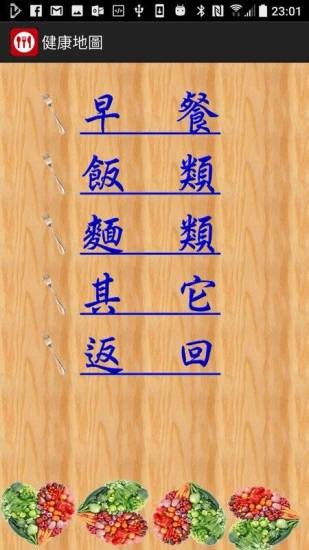 23:01
健康地圖
早 餐
飯 類
麵 類
其 它
返 回